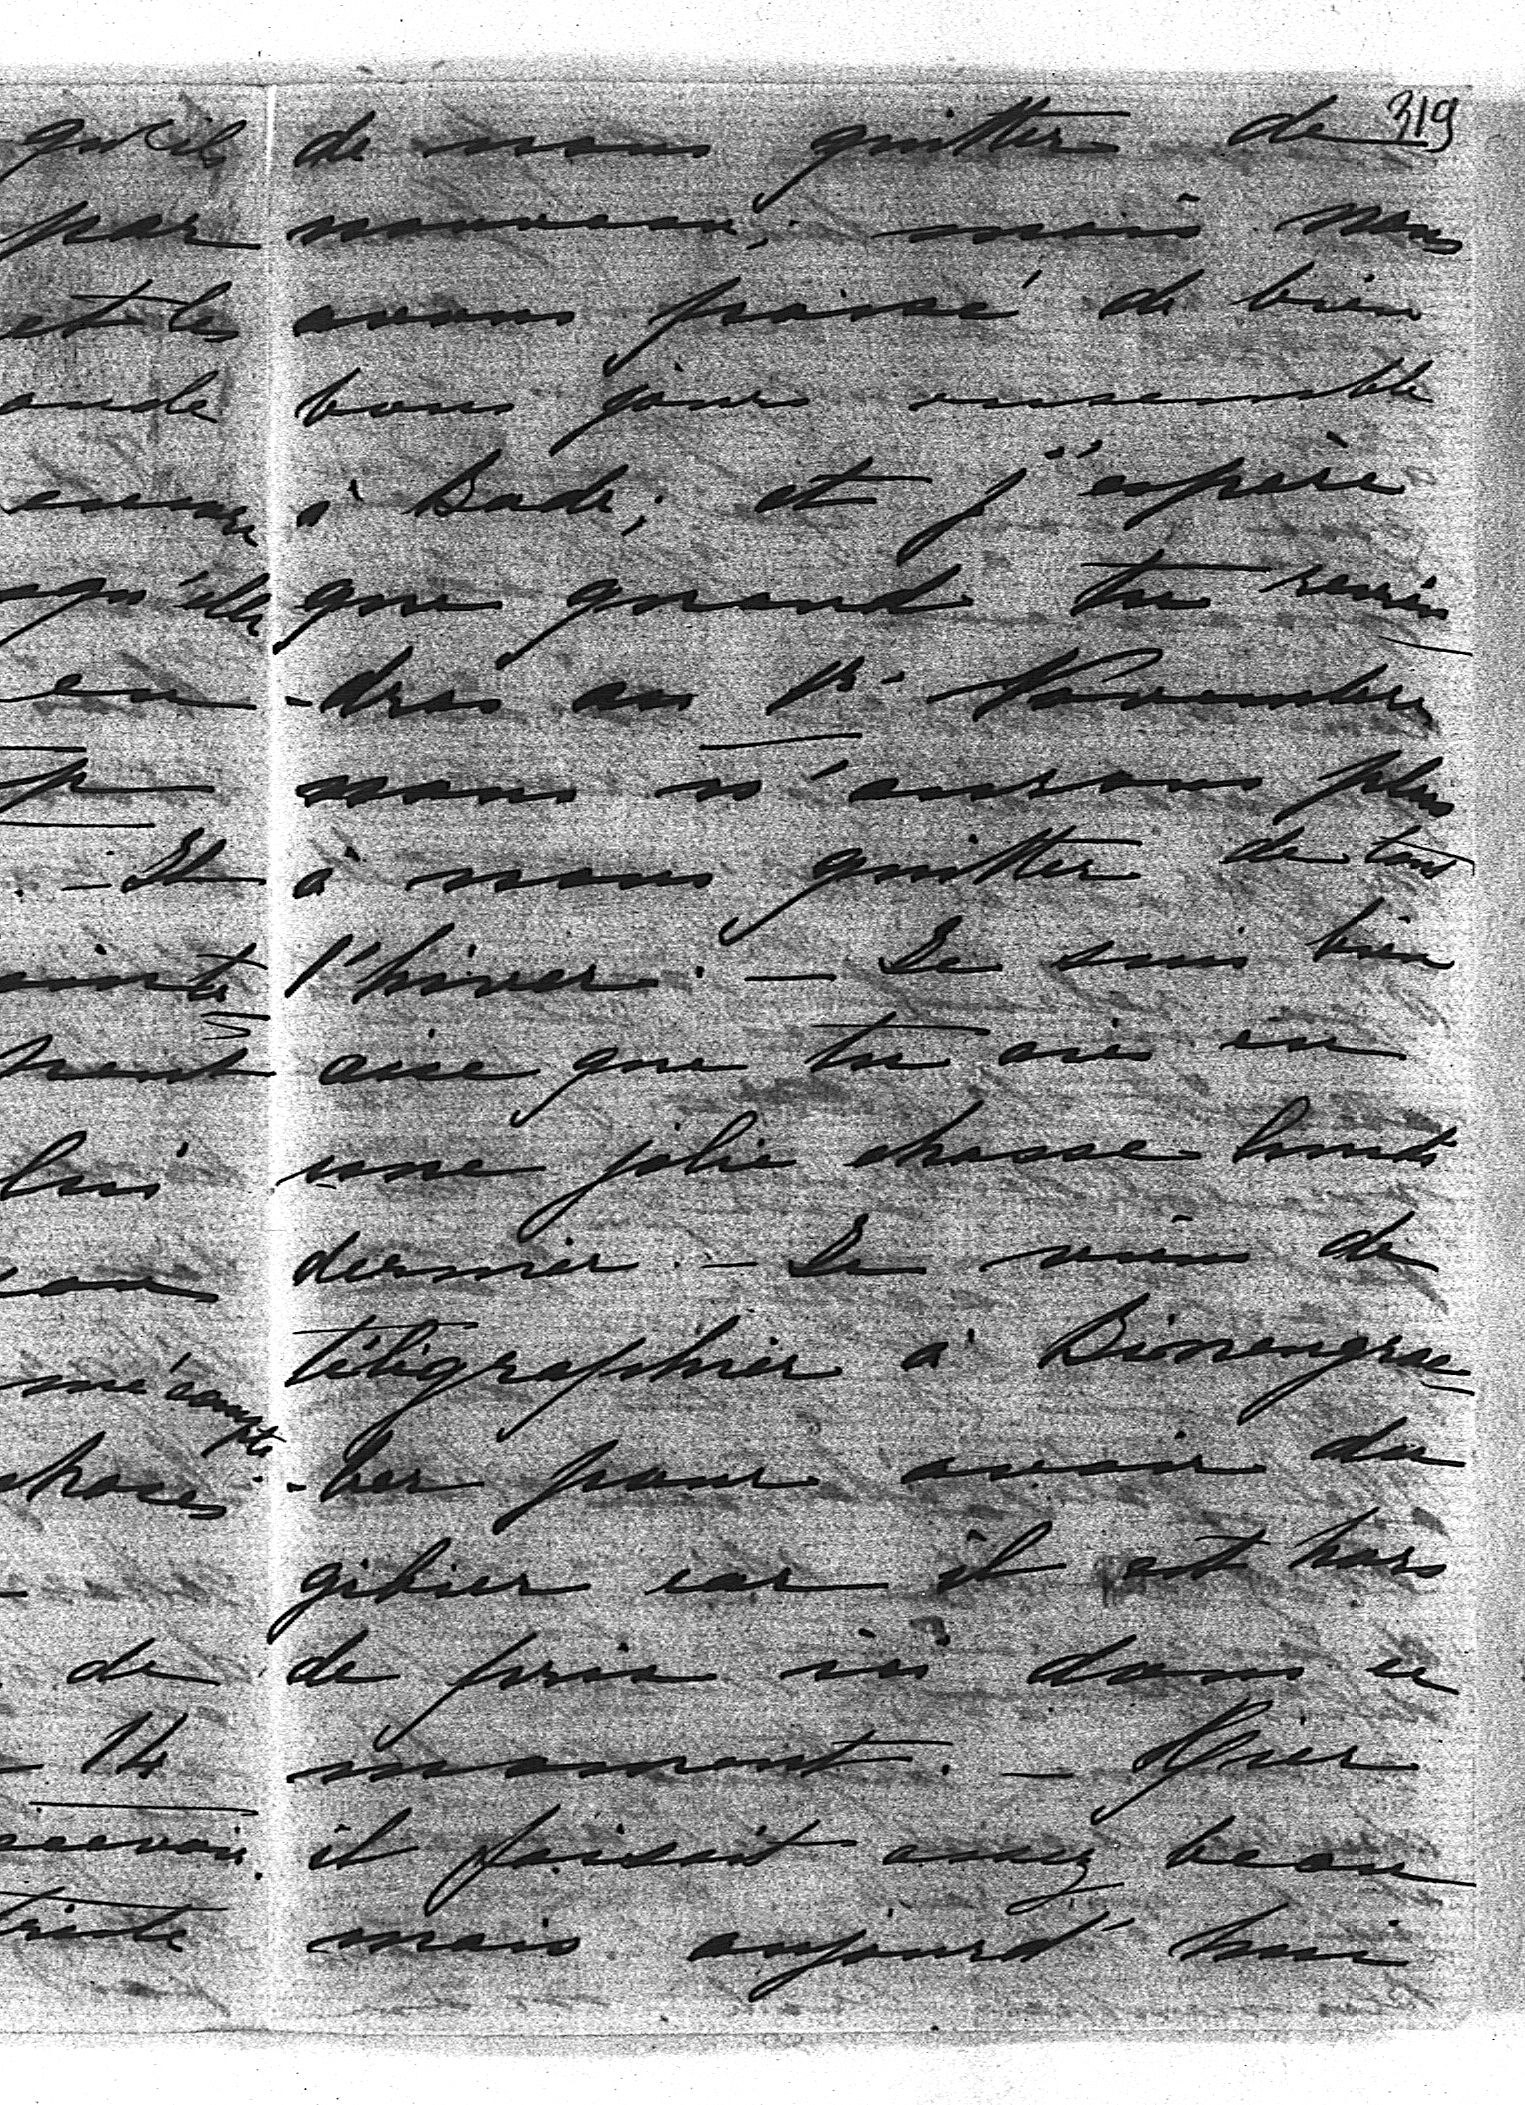 319
de nous quitter de
nouveau; mais nous
avons passé de bien
bons jours ensemble
à Bade; et j'espère
que quand tu revien
-dras au 1r. Novembre
nous n'aurons plus
à nous quitter de tout
l'hiver. — Je suis bien
aise que tu aies eu
une jolie chasse lundi
dernier. — Je viens de
télégraphier à
-ber pour avoir du
gibier car il est hors
de prix ici dans ce
moment. — Hier
il faisait assez beau
mais aujourd'hui
qu'ils
par
et les
qu'elle
en
. — Et
peut
lui
mécompte
choses.
de
14
recevoir.
triste